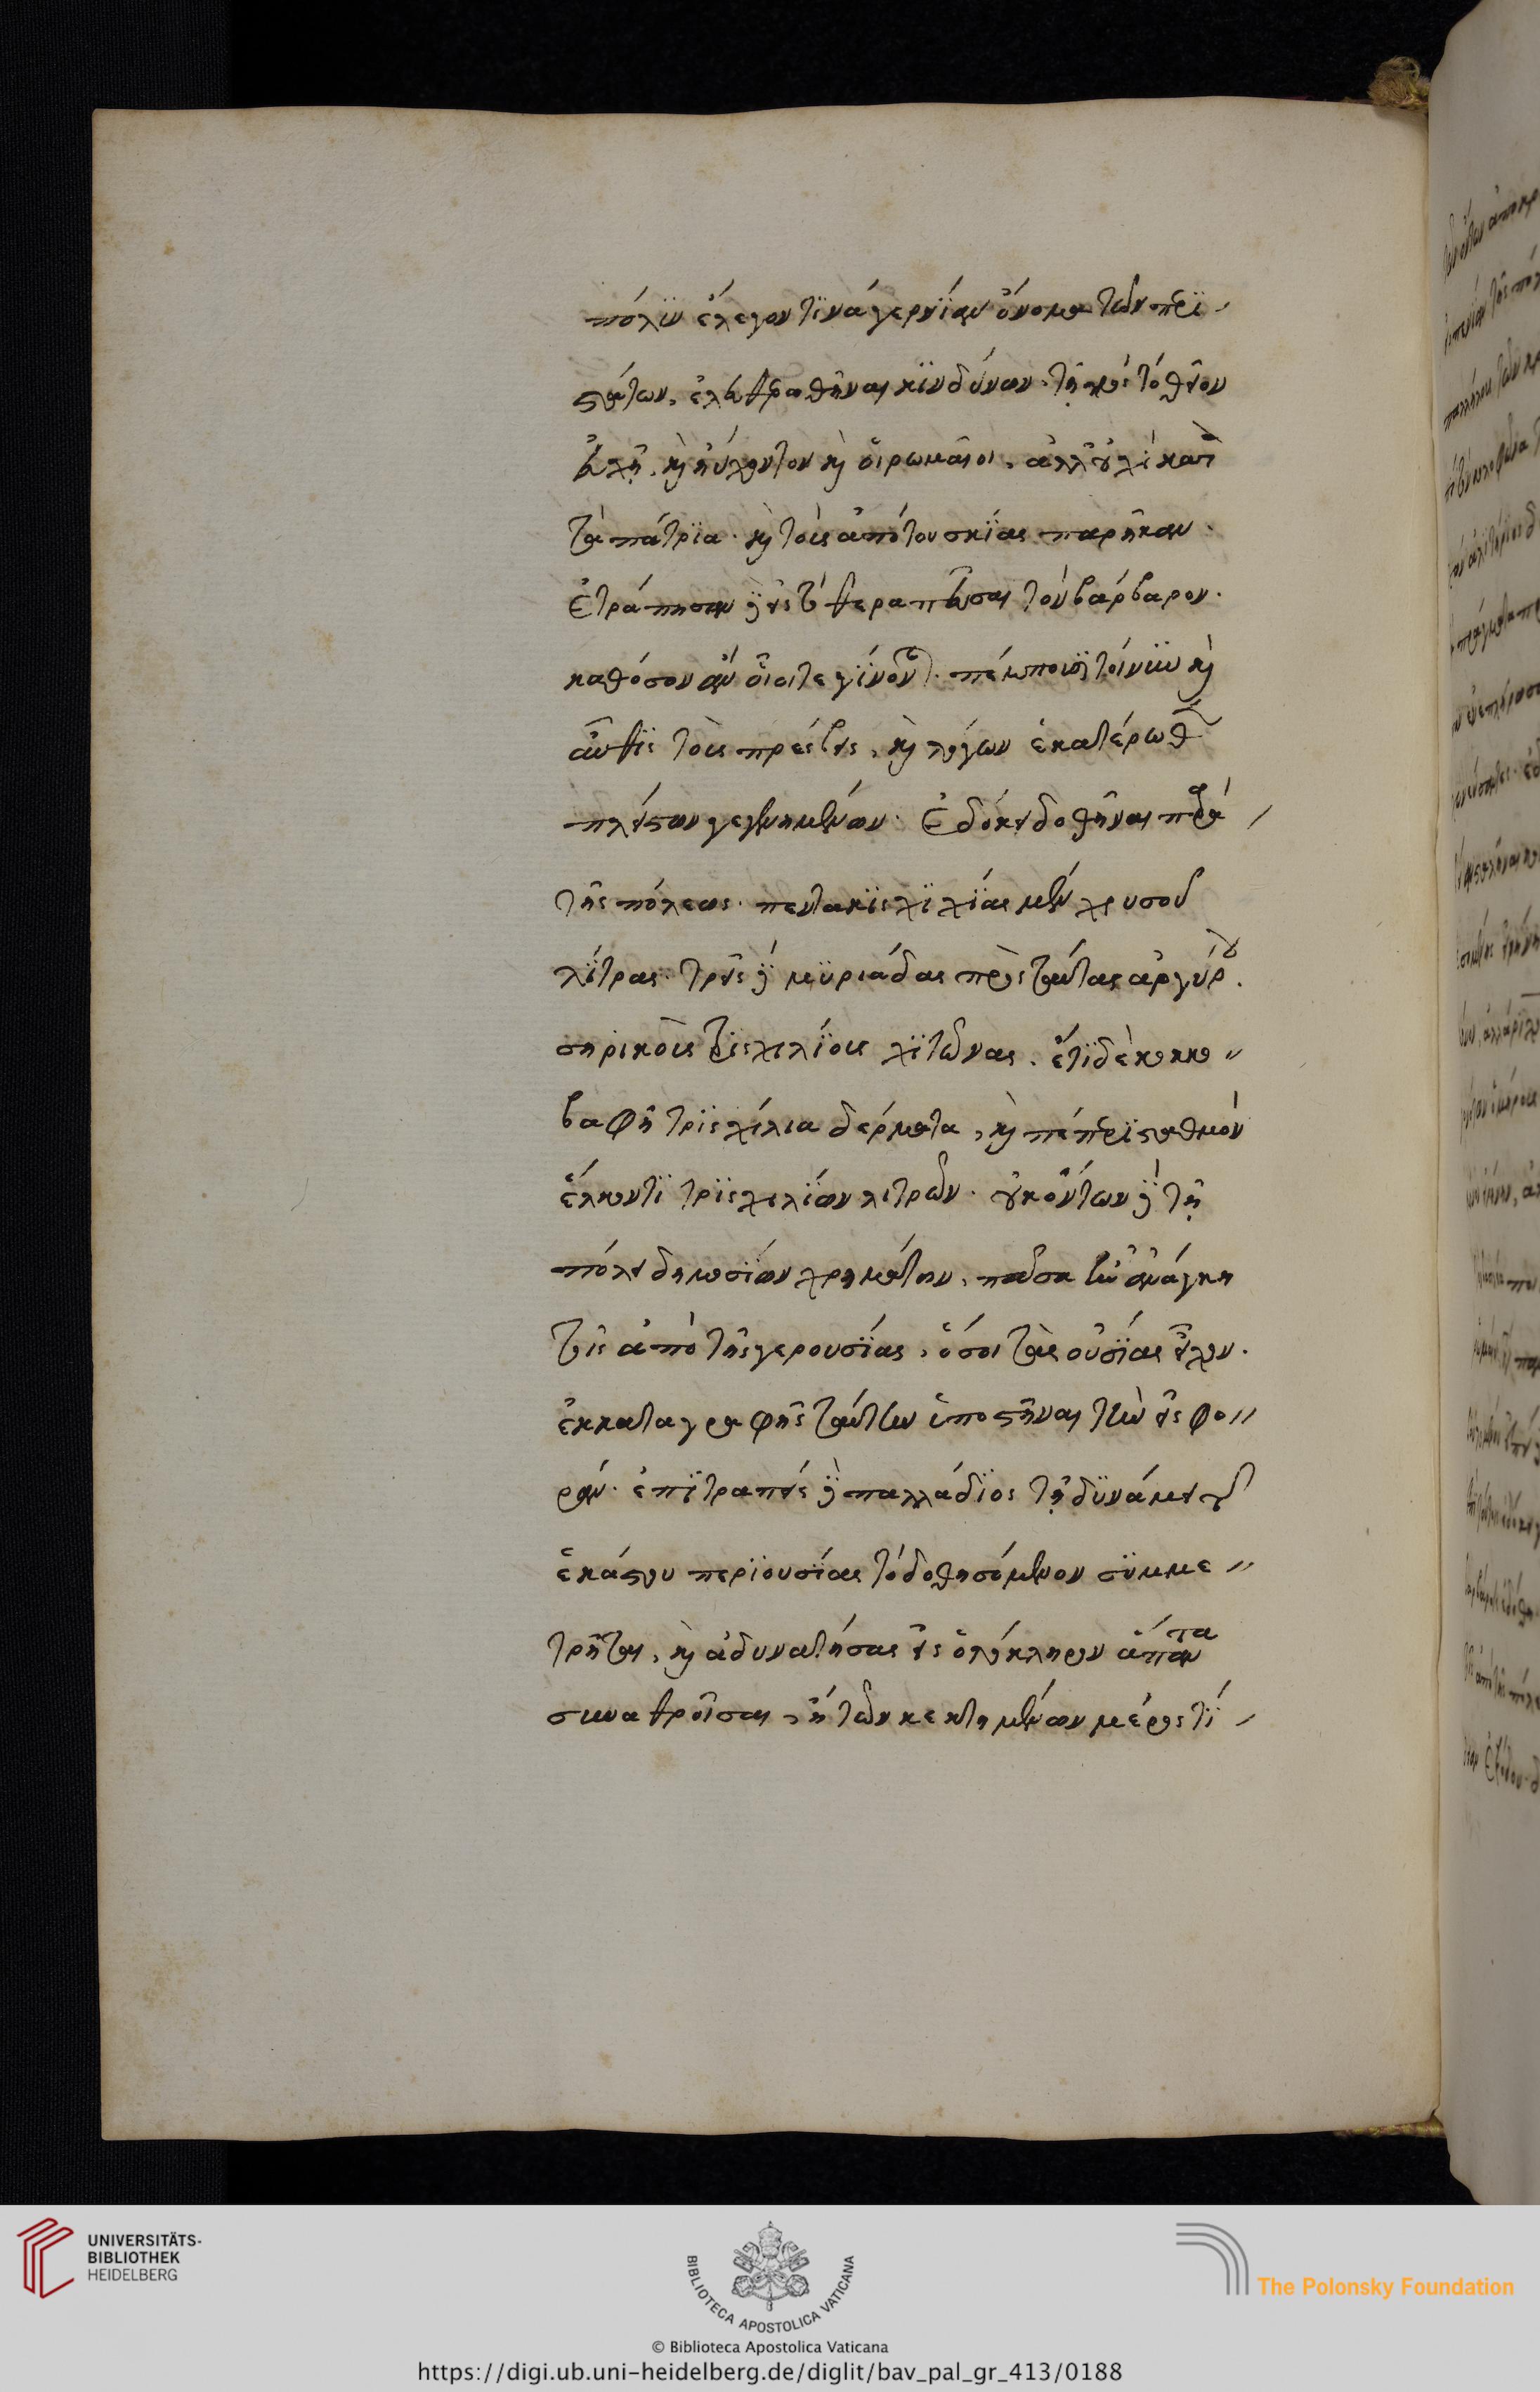 πόλϊν ἔλεγον τϊνὰ γερνίαν ὄνομα τῶν περϊ-
στάτων, ἐλευθερωθῆναι κϊνδύνων. τῇ πρὸς τὸ θεῖον
εὐχῇ. καὶ ηὔχοντον καὶ οἱ ρωμαῖοι. ἀλλ' οὐχὶ κατὰ
τὰ πάτρϊα. καὶ τοὺς ἀπὸ τουσκίας παρῆκαν.
ἐτράπησαν δὲ εἰς τὸ θεραπεῦσαι τὸν βάρβαρον.
καθόσον ἂν οἷοι τε γΐνονται. πέμπουσϊ τοίνϋν καὶ
αὖθις τοὺς πρέσβεις, καὶ λόγων ἑκατέρωθεν
πλείστων γεγενημένων. ἐδόκει δοθῆναι παρὰ
τῆς πόλεως. πεντακϊσχϊλΐας μὲν χρυσοῦ
λΐτρας. τρεῖς δὲ μϋριάδας πρὸς ταύτας ἀργύρου.
σηρικοὺς χϊτῶνας. ἔτϊ δὲ κοκκο-
βαφῆ τρϊσχίλια δέρματα, καὶ πέπερϊ σταθμὸν
ἕλκοντϊ τρϊσχιλΐων λιτρῶν. οὐκ ὄντων δὲ τῇ
πόλει δημοσΐων χρημάτων, πᾶσα ἦν ἀνάγκη
τοῖς ἀπὸ τῆς γερουσΐας, ὅσοι τὰς οὐσΐας εἶχον.
ἐκ καταγραφῆς ταύτην ὑποστῆναι τὴν εἰσφο-
ράν. ἐπϊτραπεὶς δὲ παλλάδϊος τῇ δϋνάμει τῆς
ἑκάστου περϊουσΐας τὸ δοθησόμενον σϋμμε-
τρῆσαι, καὶ ἀδυνατήσας εἰς ὁλόκληρον ἅπαντα
συναθροῖσαι, ἢ τῶν κεκτημένων μέρος τϊ-